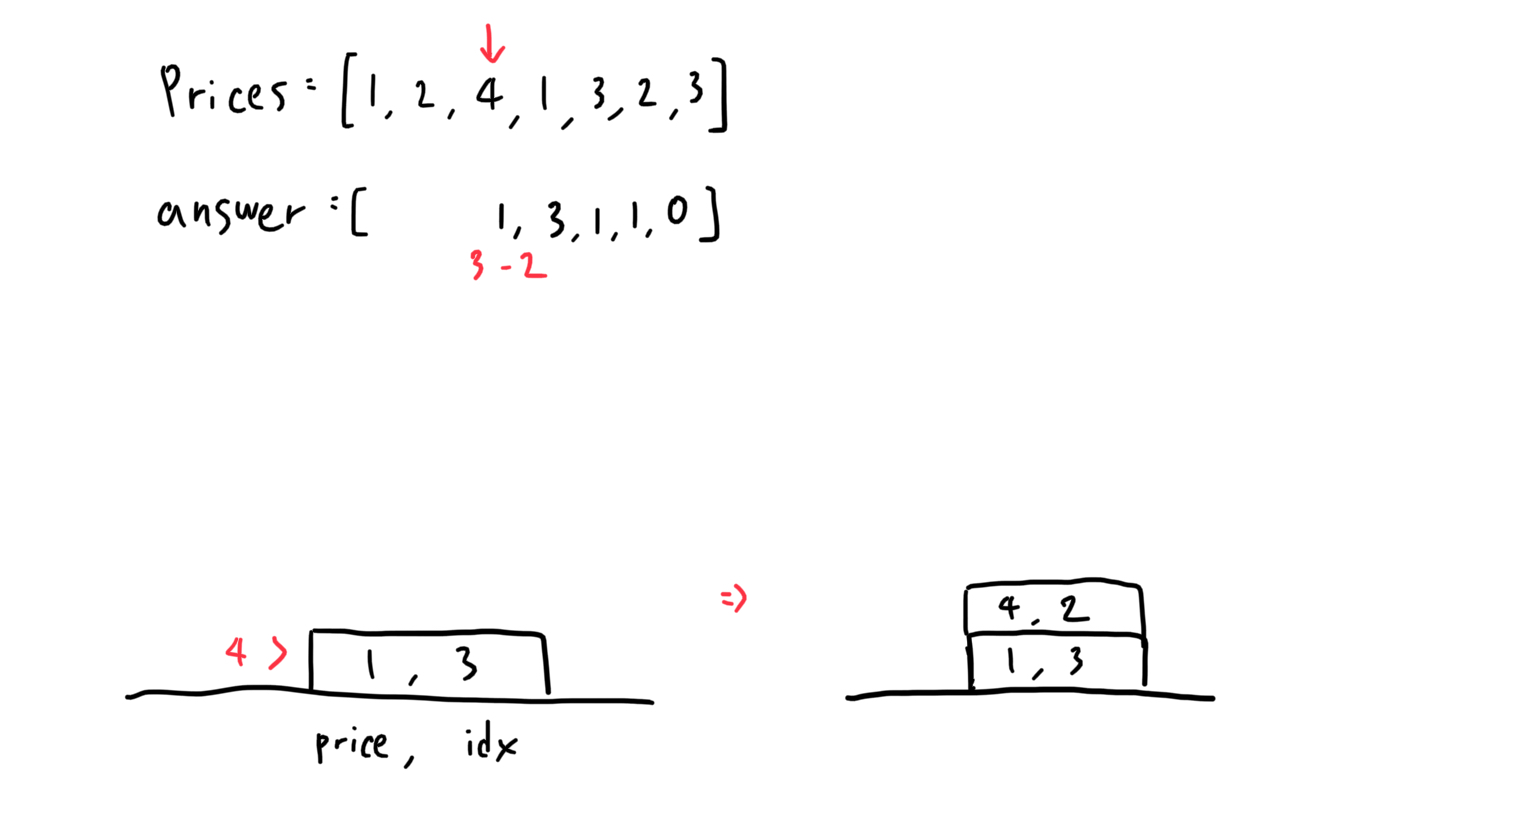 ↓
Prices = [1, 2, 4, 1, 3, 2, 3]
answer = [ 1, 3, 1, 1, 0]
3 - 2
=>
4, 2
4 > 1, 3
1, 3
price, idx